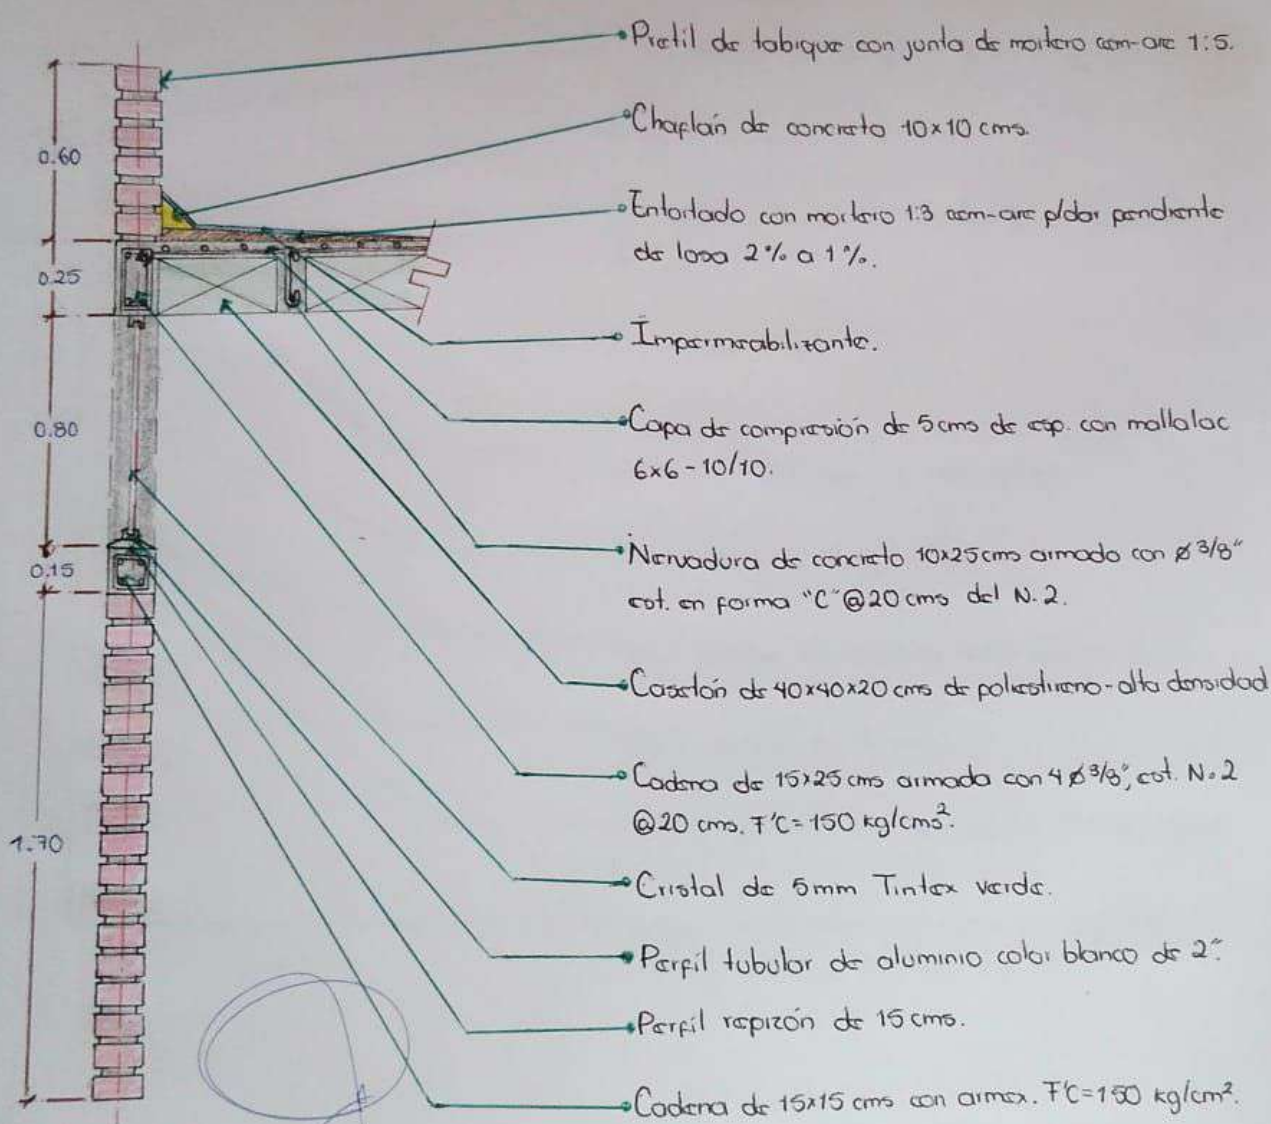 Pretil de tabique con junta de mortero cem-are 1:5.
Chaflán de concreto 10x10 cms.
Entortado con mortero 1:3 cem-are p/dar pendiente
de losa 2% a 1%.
Impermeabilizante.
Capa de compresión de 5cms de esp. con mallalac
6x6-10/10.
Nervadura de concreto 10x25cms armado con Ø 3/8"
est. en forma "C" @20 cms del N.2.
Casetón de 40x40x20 cms de poliestireno-alta densidad
Cadena de 15x25 cms armada con 4 Ø 3/8", est. No.2
@20 cms. F'C=150 kg/cms².
Cristal de 5mm Tintex verde.
Perfil tubular de aluminio color blanco de 2".
Perfil repizón de 15 cms.
Cadena de 15x15 cms con armex. F'C=150 kg/cm².
0.60
0.25
0.80
0.15
1.70